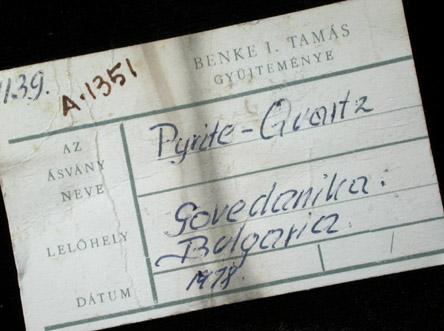 1139.
A.1351
BENKE I. TAMÁS
GYŰJTEMÉNYE
AZ
ÁSVÁNY
NEVE
Pyrite-Quartz
LELŐHELY
Govedanika.
Bulgaria.
DÁTUM
1978.